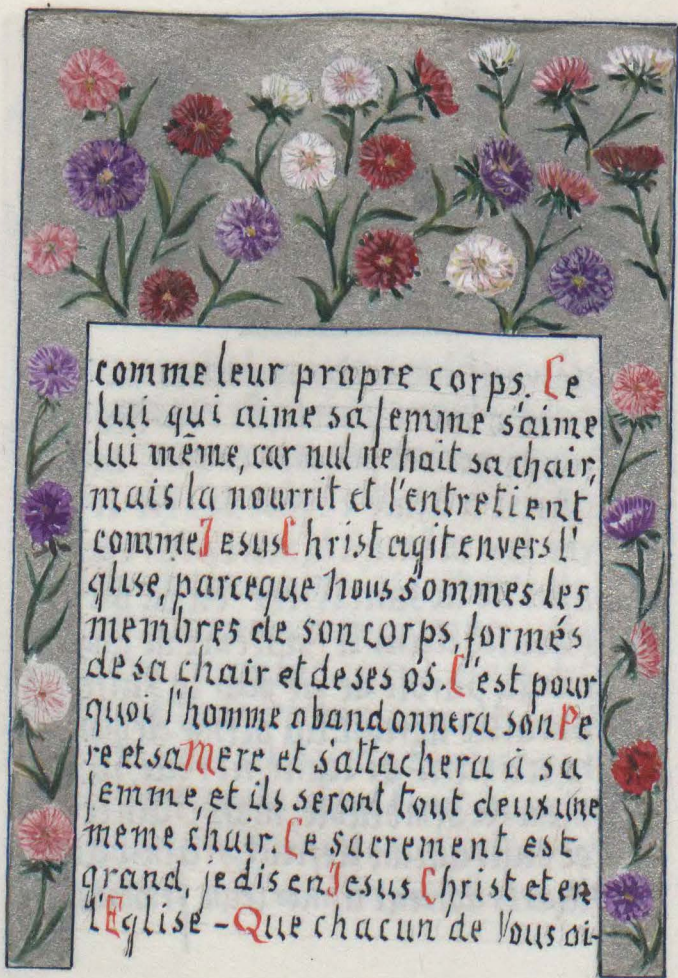 comme leur propre corps. Ce
lui qui aime sa femme s'aime
lui même, car nul ne hait sa chair,
mais la nourrit et l'entretient
comme Jesus Christ agit envers l'
glise, parceque nous sommes les
membres de son corps, formés
de sa chair et de ses os. C'est pour
quoi l'homme abandonnera son Pe
re et sa Mere et s'attachera à sa
femme, et ils seront tout deux une
meme chair. Ce sacrement est
grand, je dis en Jesus Christ et en
l'Eglise - Que chacun de Vous ai-